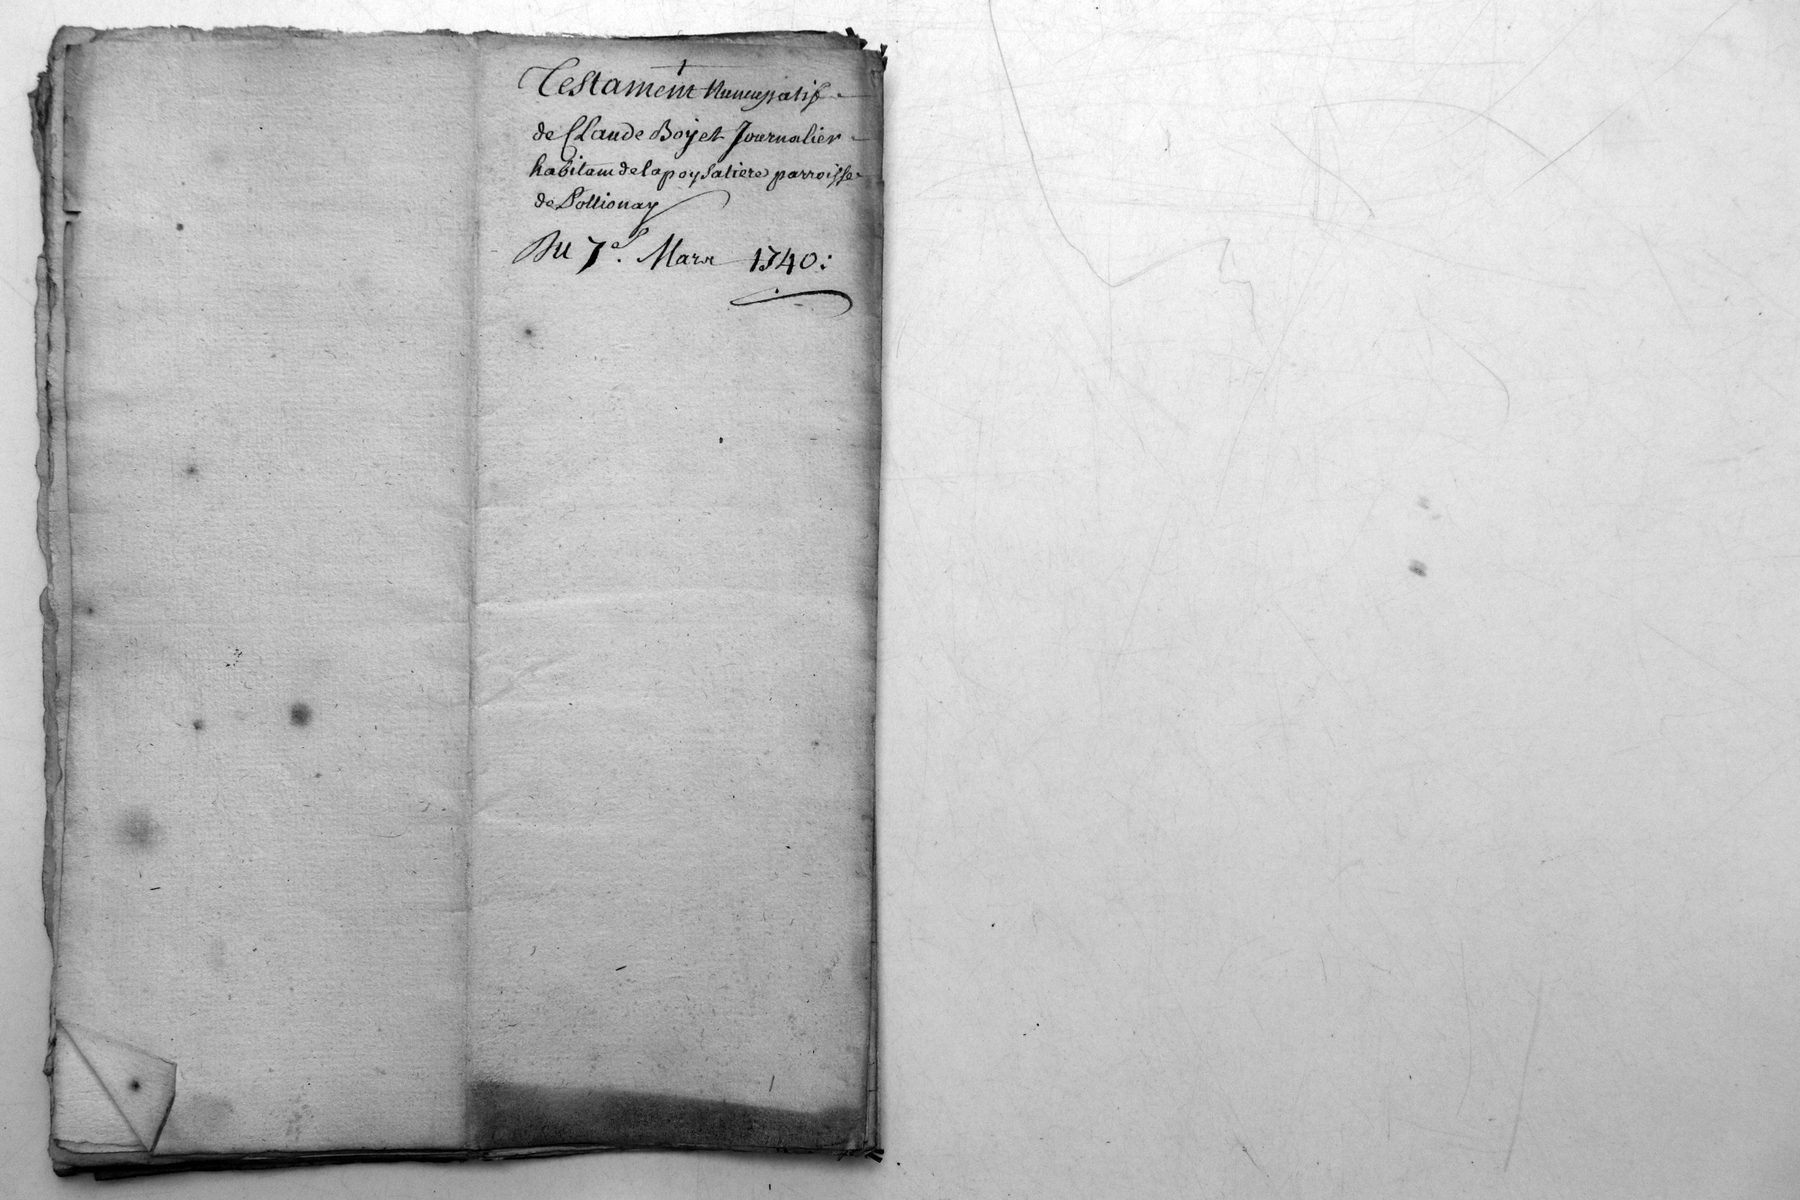 Testament Nuncupatif
de Claude Boyet Journalier
habitant de la poysatiere parroisse
de Pollionay
Du 7e. Mars 1740: